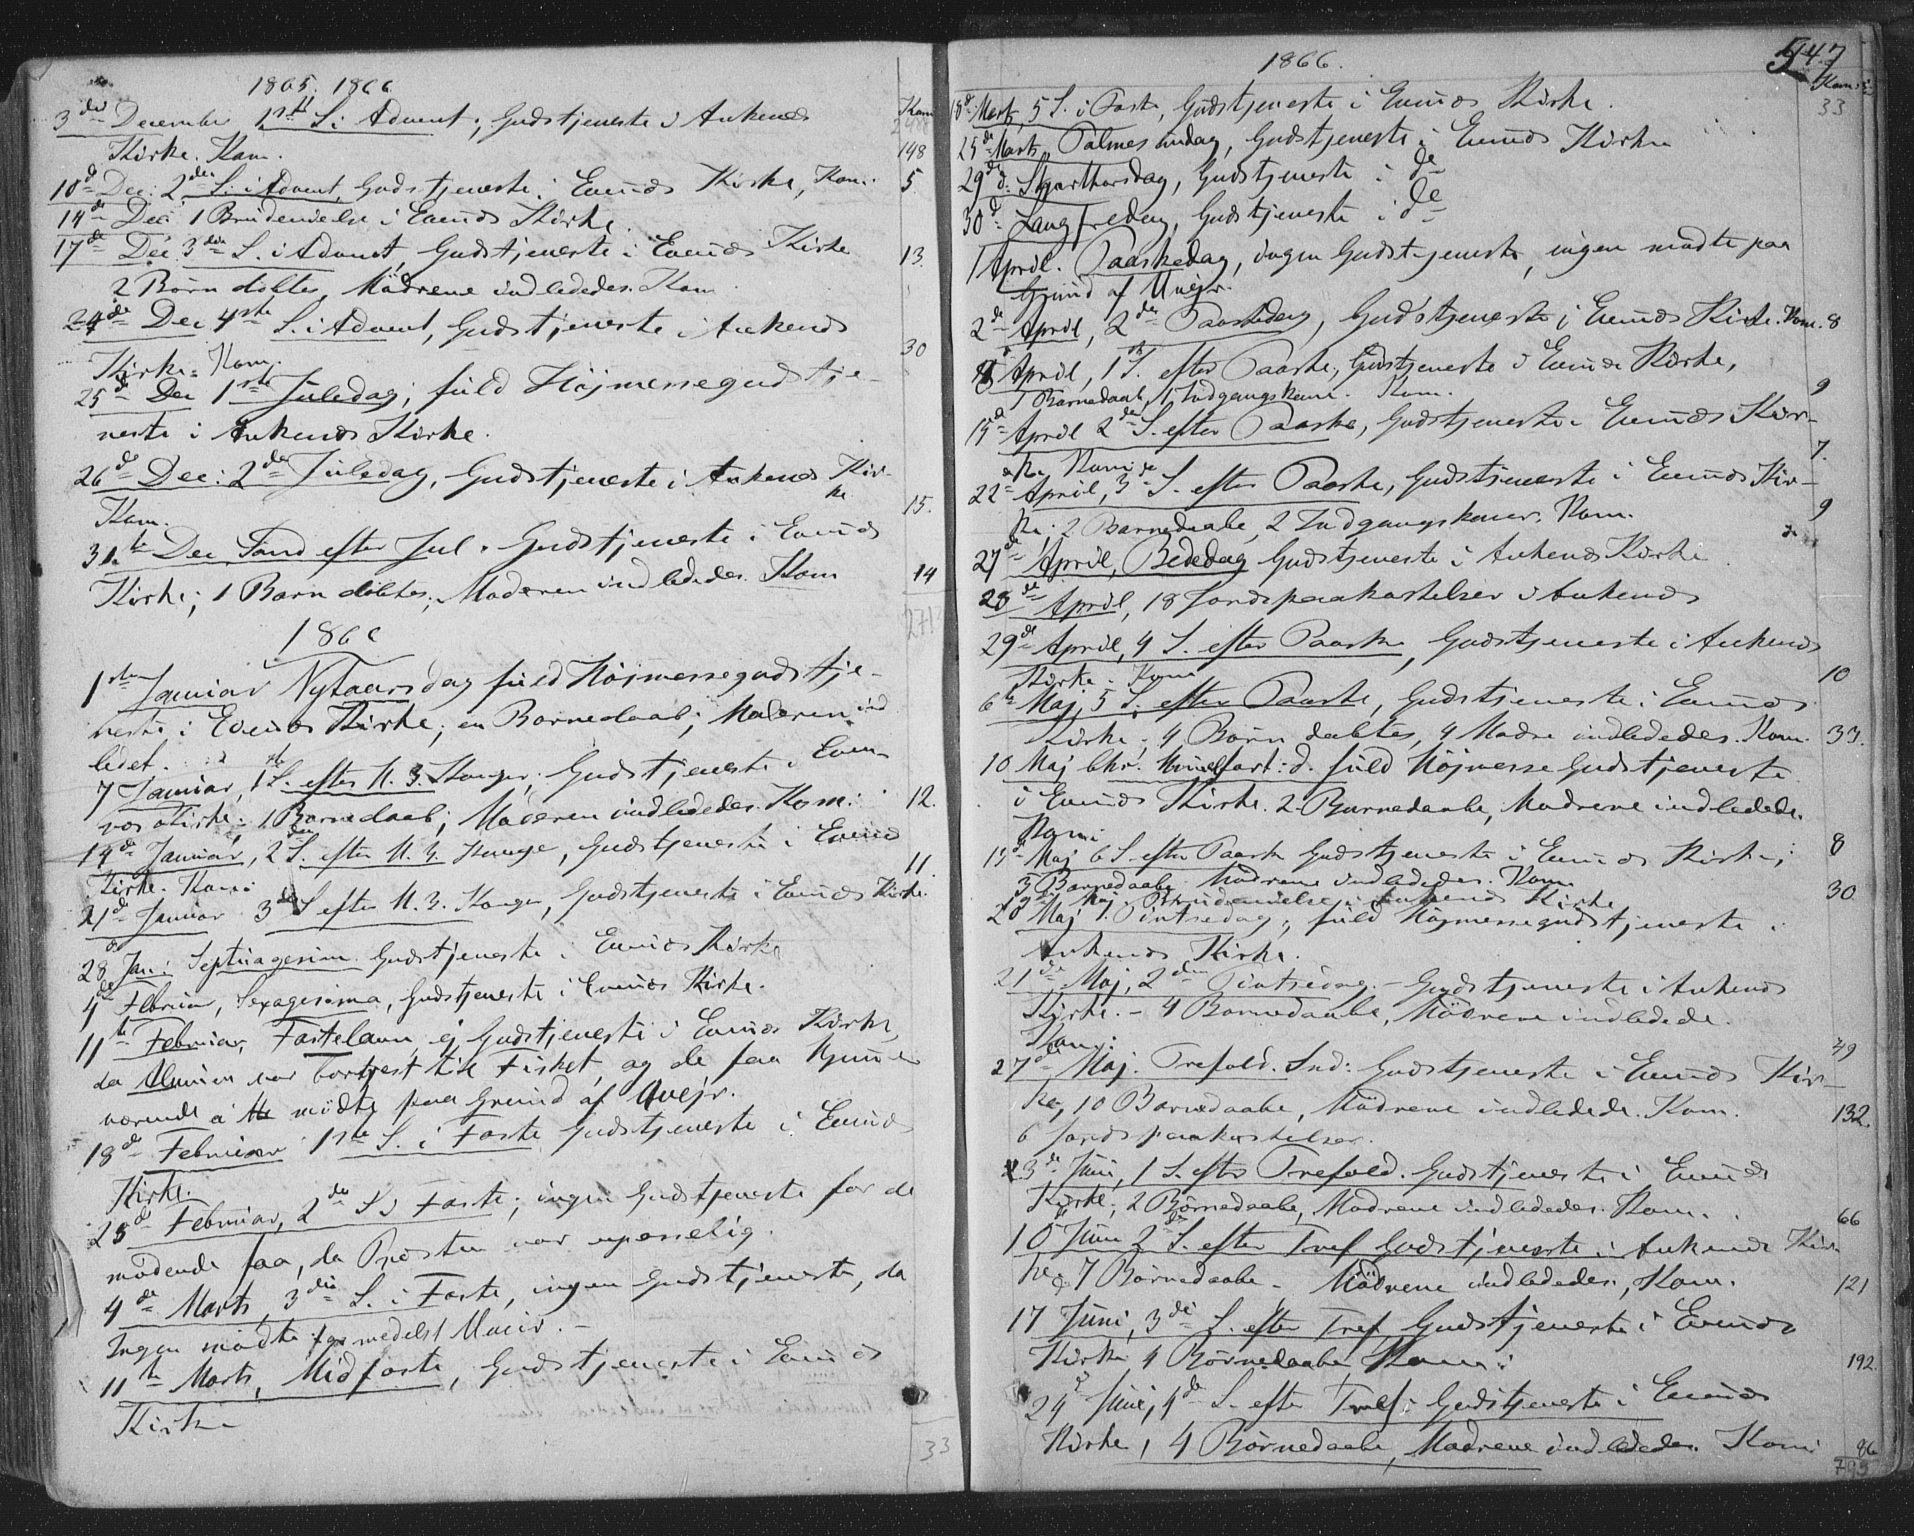 1865. 1866
Kom
3die December 1ste S. i Advent; Gudstjeneste i Ankenes
Kirke. Kom. 148
10de Dec: 2den S. i Advent, Gudstjeneste i Evenæs Kirke, Kom. 5
14de Dec. 1 Brudevielse i Evenæs Kirke.
17de Dec. 3die S. i Advent, Gudstjeneste i Evenæs Kirke 13.
2 Børn døbtes, Mødrene indlededes. Kom
24de Dec 4de S. i Advent, Gudstjeneste i Ankenes
Kirke. Kom. 30
25de Dec 1ste Juledag; fuld Højmessegudstje-
neste i Ankenes Kirke.
26de Dec: 2den Juledag, Gudstjeneste i Ankenes Kir-
ke
Kom. 15.
31te Dec Sønd efter Jul. Gudstjeneste i Evenæs
Kirke; 1 Barn døbtes; Moderen indlededes. Kom 14
271
1866
1ste Januar Nytaarsdag fuld Højmessegudstje-
neste i Evenæs Kirke; en Barnedaab; Moderen ind
ledet.
7 Januar, 1 S. efter H. 3. Konger; Gudstjeneste i Even-
næs Kirke; 1 Barnedaab; Moderen indlededes. Kom: 12.
14de Januar, 2den S. efter H. 3. Konge, Gudstjeneste i Evenæs
Kirke. Kom: 11.
21de Januar 3die S efter H. 3. Konger, Gudstjeneste i Evenæs Kirke.
28 Jan: Septuagesima Gudstjeneste i Evenæs Kirke
4de Februar, Sexagesima, Gudstjeneste i Evenæs Kirke.
11te Februar, Fastelavn, ej Gudstjeneste i Evenæs Kirke,
da Almuen var bortrejst til Fisket, og de faa hjemme
værende ei mødte paa Grund af Uvejr.
18de Februar 1ste S. i Faste Gudstjeneste i Evenæs
Kirke.
25de Februar, 2den S i Faste; ingen Gudstjeneste for de
mødende faa, da Præsten var upasselig.
4de Marts 3die S. i Faste, ingen Gudstjeneste, da
Ingen mødte formedelst Uveir.
11te Marts, Midfaste, Gudstjeneste i Evenæs
Kirke
33
1866.
547
Kom:
18de Marts, 5 S. i Faste, Gudstjeneste i Evenæs Kirke. 33
25de Marts Palmesøndag, Gudstjeneste i Evenæs Kirke
29de d. Skjærthorsdag, Gudstjeneste i do
30de d. Langfredag, Gudstjeneste i do
1 April. Paaskedag, ingen Gudstjeneste, ingen mødte paa
Grund af Uvejr.
2de April, 2den Paaskedag, Gudstjeneste i Evenæs Kirke. Kom. 8
8 April, 1 S. efter Paaske, Gudstjeneste i Evenæs Kirke,
1 Barnedaab, 1 Indgangskone. Kom. 9
15de April 2den S. efter Paaske, Gudstjeneste i Evenæs Kir-
ke, Kom: 7.
22de April, 3die S. efter Paaske, Gudstjeneste i Evenæs Kir-
ke; 2 Barnedaabe, 2 Indgangskoner, Kom. 9
27de April, Bededag Gudstjeneste i Ankenæs Kirke
28de April, 18 Jordspaakastelser i Ankenæs
29de April, 4 S. efter Paaske, Gudstjeneste i Ankenæs
Kirke. Kom 10
6te Maj, 5 S. efter Paaske, Gudstjeneste i Evenæs
Kirke; 4 Børn døbtes, 4 Mødre indlededes. Kom. 33.
10 Maj Chr. Himelfart: d. fuld Højmesse Gudstjeneste
i Evenæs Kirke. 2 Barnedaabe, Mødrene indledede.
Kom: 8
13de Maj 6 S. efter Paaske Gudstjeneste i Evenæs Kirke;
3 Barnedaabe Mødrene indlededes. Kom 30
Maj Brudevielse i Ankenæs Kirke
20 Maj 1. Pintsedag; fuld Højmessegudstjeneste i
Ankenæs Kirke.
21de Maj, 2den Pintsedag. – Gudstjeneste i Ankenæs
Kirke. – 4 Barnedaabe, Mødrene indledede.
Kom: 49
27de Maj. Trefold. Snd: Gudstjeneste i Evenæs Kir-
ke, 10 Barnedaabe, Mødrene indledede. Kom. 132.
6 Jordspaakastelser.
3de Juni, 1 S. efter Trefold. Gudstjeneste i Evenæs
Kirke; 2 Børnedaabe, Mødrene indlededes. Kom. 66
10de Juni 2den S. efter Tref Gudstjeneste i Ankenæs Kir-
ke; 7 Børnedaabe – Mødrene indlededes, Kom. 121
17 Juni, 3die S. efter Tref, Gudstjeneste i Evenæs
Kirke 4 Børnedaabe, Kom: 192.
24de Juni, 4de S. efter Tref: Gudstjeneste i Evenæs
Kirke, 4 Børnedaabe, Mødrene indlededes. Kom 86
793